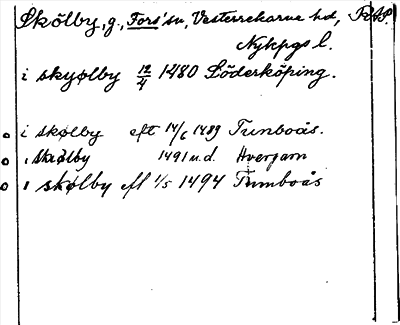 Skölby, g., Fors' sn, Vesterrekarne hd, RAP.
Nykpgs l.
i skyølby 12/4 1480 Söderköping.
i skølby eft 14/6 1489 Tunboås.
i Skølby 1491 u.d. Hvergarn
i skølby eft 1/5 1494 Tumboås